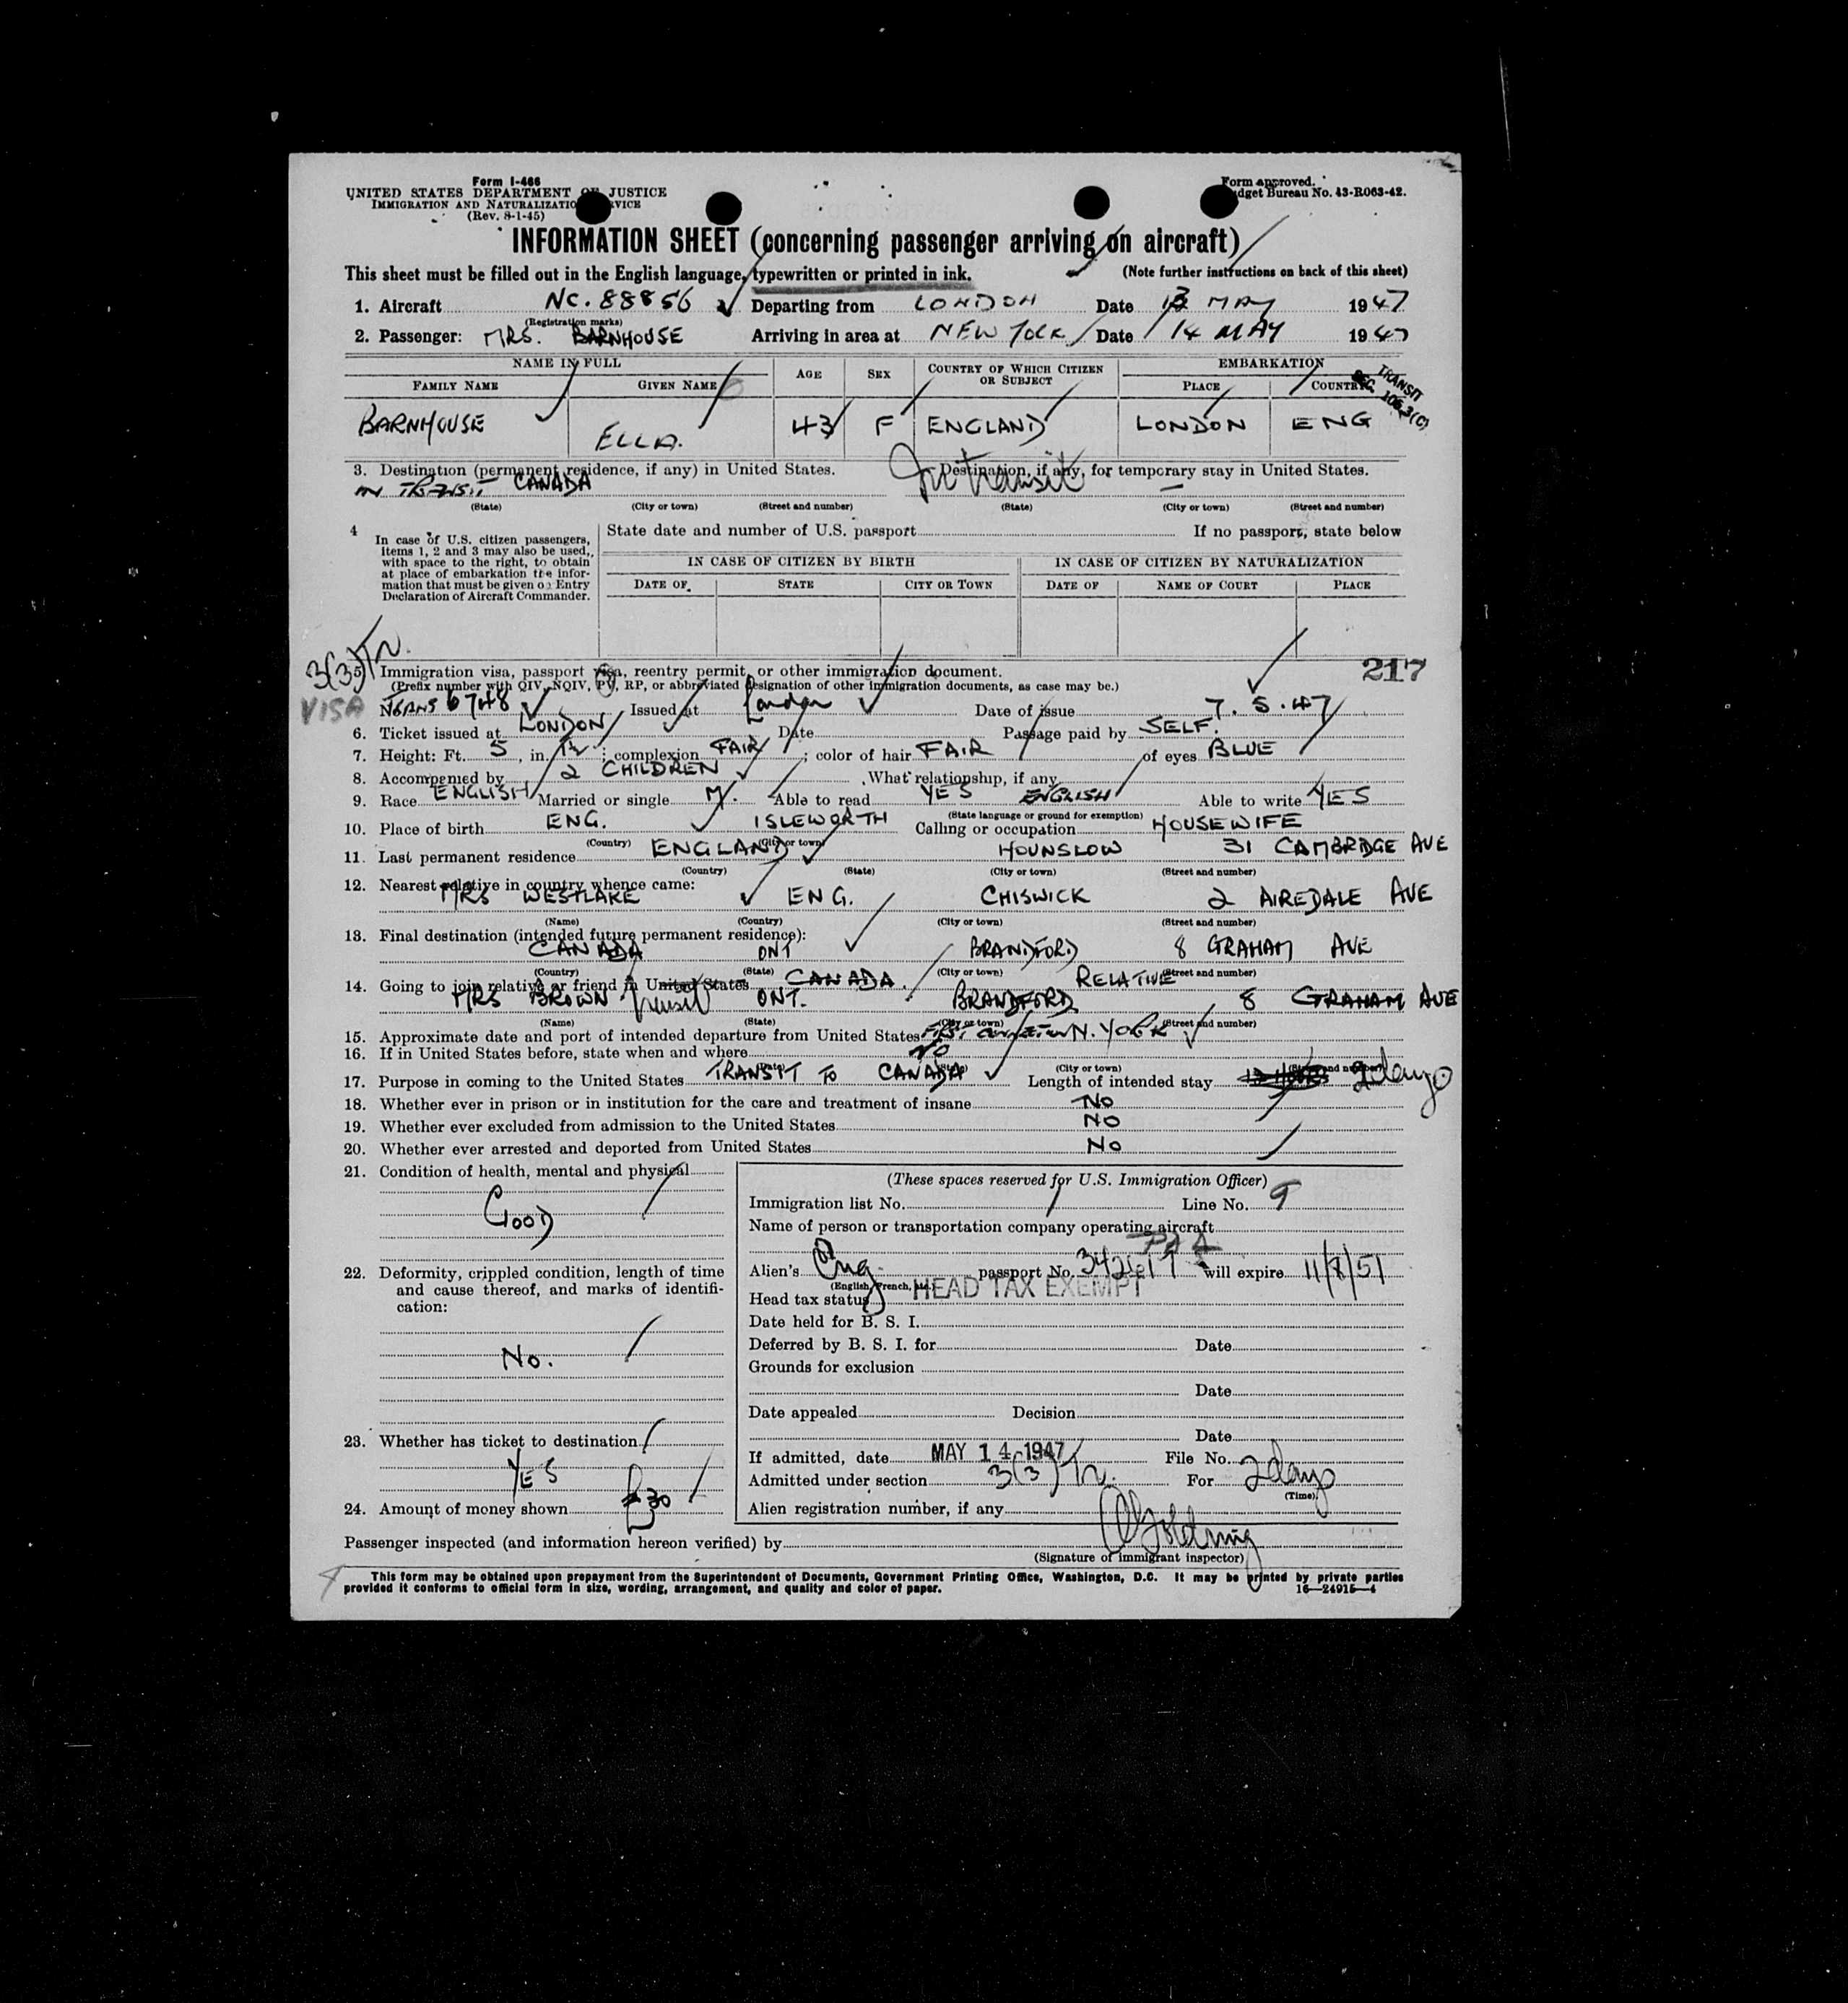 Form I-466
UNITED STATES DEPARTMENT OF JUSTICE
IMMIGRATION AND NATURALIZATION SERVICE
(Rev. 8-1-45)
Form approved.
Budget Bureau No. 43-R063-42.
INFORMATION SHEET (concerning passenger arriving on aircraft)
This sheet must be filled out in the English language, typewritten or printed in ink. (Note further instructions on back of this sheet)
1. Aircraft NC. 88856 Departing from LONDON Date 13 MAY 1947
(Registration marks)
2. Passenger: MRS. BARNHOUSE Arriving in area at NEW YORK Date 14 MAY 1947
NAME IN FULL AGE SEX COUNTRY OF WHICH CITIZEN OR SUBJECT EMBARKATION
FAMILY NAME GIVEN NAME PLACE COUNTRY
TRANSIT
SEC. 106.3(C)
BARNHOUSE ELLA. 43 F ENGLAND LONDON ENG
3. Destination (permanent residence, if any) in United States. Destination, if any, for temporary stay in United States.
IN TRANSIT CANADA In transit
(State) (City or town) (Street and number) (State) (City or town) (Street and number)
4 In case of U.S. citizen passengers, items 1, 2 and 3 may also be used, with space to the right, to obtain at place of embarkation the information that must be given on Entry Declaration of Aircraft Commander.
State date and number of U.S. passport If no passport, state below
IN CASE OF CITIZEN BY BIRTH IN CASE OF CITIZEN BY NATURALIZATION
DATE OF STATE CITY OR TOWN DATE OF NAME OF COURT PLACE
3(3) Tr.
217
5. Immigration visa, passport visa, reentry permit, or other immigration document.
(Prefix number with QIV, NQIV, PV, RP, or abbreviated designation of other immigration documents, as case may be.)
VISA No. TRANS 6748 Issued at London Date of issue 7.5.47
6. Ticket issued at LONDON Date Passage paid by SELF.
7. Height: Ft. 5, in. ; complexion FAIR; color of hair FAIR of eyes BLUE
8. Accompanied by 2 CHILDREN What relationship, if any
9. Race ENGLISH Married or single M. Able to read YES ENGLISH Able to write YES
(State language or ground for exemption)
10. Place of birth ENG. ISLEWORTH Calling or occupation HOUSEWIFE
(Country) (City or town)
11. Last permanent residence ENGLAND HOUNSLOW 31 CAMBRIDGE AVE
(Country) (State) (City or town) (Street and number)
12. Nearest relative in country whence came:
MRS WESTLAKE ENG. CHISWICK 2 AIREDALE AVE
(Name) (Country) (City or town) (Street and number)
13. Final destination (intended future permanent residence):
CANADA ONT BRANDFORD 8 GRAHAM AVE
(Country) (State) (City or town) (Street and number)
14. Going to join relative or friend in United States CANADA. RELATIVE
MRS BROWN ONT. BRANDFORD 8 GRAHAM AVE
(Name) (State) (City or town) (Street and number)
15. Approximate date and port of intended departure from United States FIRST CONNECTION N. YORK
16. If in United States before, state when and where NO
(Date) (State) (City or town) (Street and number)
17. Purpose in coming to the United States TRANSIT TO CANADA Length of intended stay 2 days
18. Whether ever in prison or in institution for the care and treatment of insane NO
19. Whether ever excluded from admission to the United States NO
20. Whether ever arrested and deported from United States NO
21. Condition of health, mental and physical
GOOD
22. Deformity, crippled condition, length of time and cause thereof, and marks of identification:
NO.
23. Whether has ticket to destination
YES
24. Amount of money shown £30
(These spaces reserved for U.S. Immigration Officer)
Immigration list No. 1 Line No. 9
Name of person or transportation company operating aircraft
PAA
Alien's Eng passport No. 342617 will expire 11/8/51
(English, French, etc.)
Head tax status HEAD TAX EXEMPT
Date held for B. S. I.
Deferred by B. S. I. for Date
Grounds for exclusion
Date
Date appealed Decision
Date
If admitted, date MAY 14 1947 File No.
Admitted under section 3(3) Tr. For 2 days
(Time)
Alien registration number, if any
Passenger inspected (and information hereon verified) by
(Signature of immigrant inspector)
This form may be obtained upon prepayment from the Superintendent of Documents, Government Printing Office, Washington, D.C. It may be printed by private parties
provided it conforms to official form in size, wording, arrangement, and quality and color of paper. 16—24915—4